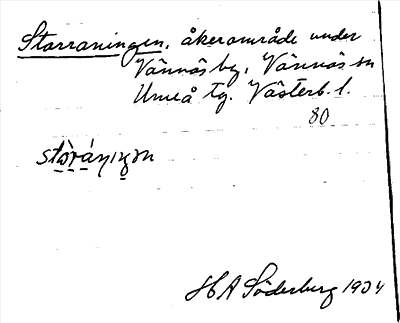 Storraningen, åkerområde under
Vännäs by, Vännäs sn
Umeå tg. Västerb. l.
80
H A Söderburg 1934